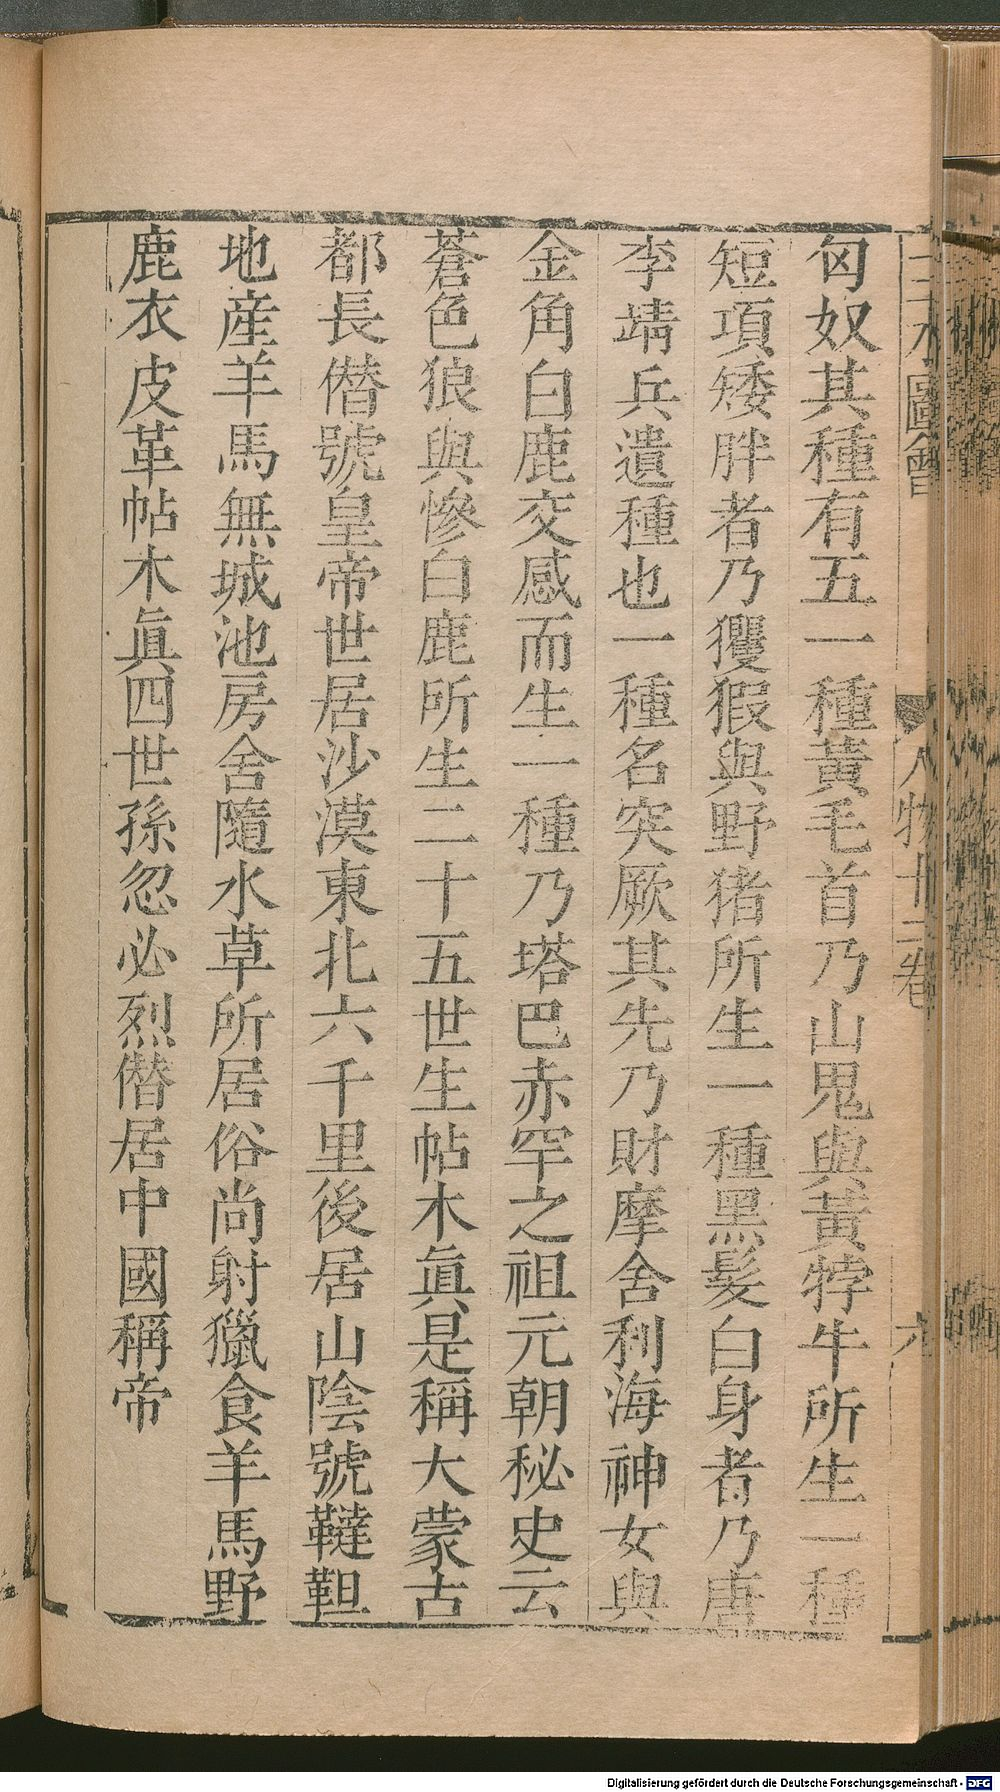 三才圖會 人物十二卷 六
匈奴其種有五一種黃毛首乃山鬼與黃牸牛所生一種
短項矮胖者乃玃猳與野猪所生一種黑髮白身者乃唐
李靖兵遺種也一種名突厥其先乃財摩舍利海神女與
金角白鹿交感而生一種乃塔巴赤罕之祖元朝秘史云
蒼色狼與慘白鹿所生二十五世生帖木眞是稱大蒙古
都長僣號皇帝世居沙漠東北六千里後居山陰號韃靼
地産羊馬無城池房舍隨水草所居俗尚射獵食羊馬野
鹿衣皮革帖木眞四世孫忽必烈僣居中國稱帝
Digitalisierung gefördert durch die Deutsche Forschungsgemeinschaft - DFG